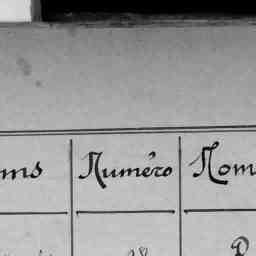 ms Numéro Nom